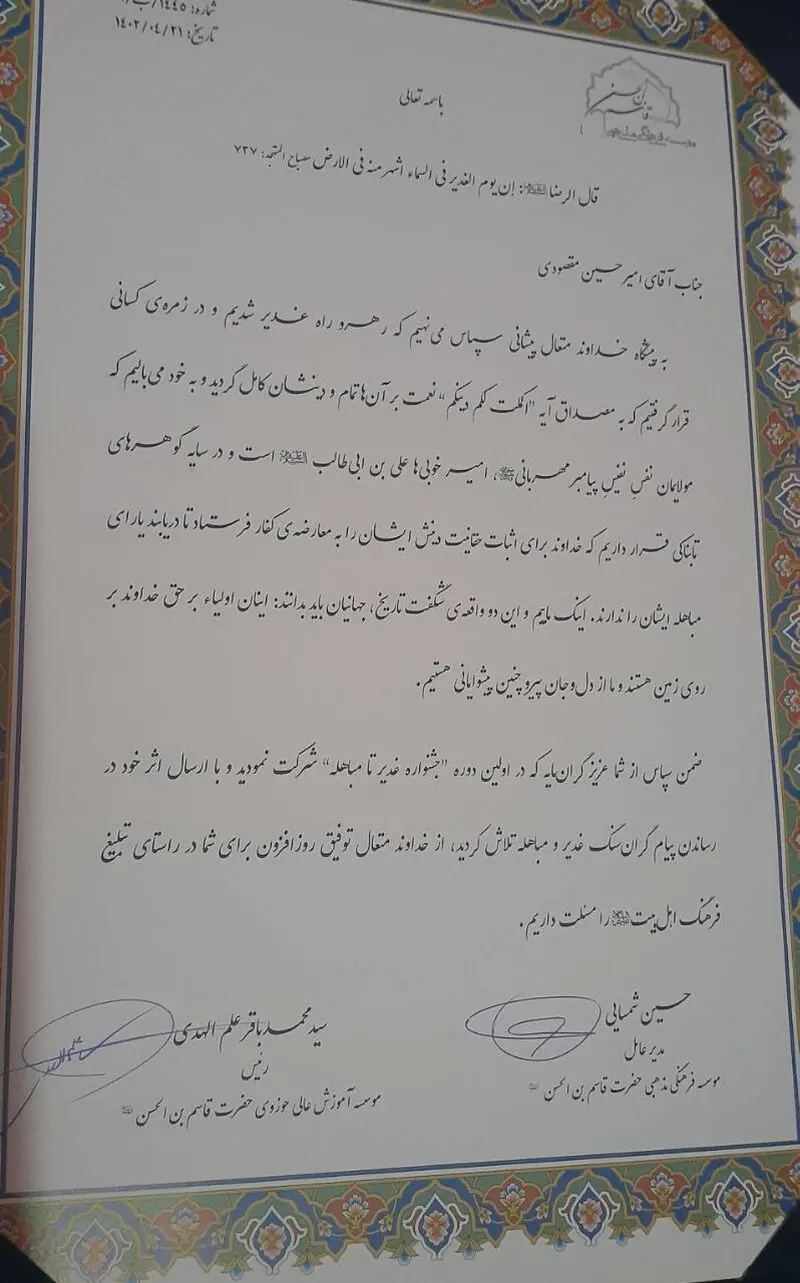 شماره: ۱۴۴۵/ب/
تاریخ: ۱۴۰۲/۰۴/۲۱
باسمه تعالی
قاسم بن الحسن
قال الرضا علیه‌السلام: إن یوم الغدیر فی السماء أشهر منه فی الارض مصباح المتهجد: ۷۳۷
جناب آقای امیرحسین مقصودی
به پیشگاه خداوند متعال پیشانی سپاس می‌نهیم که رهرو راه غدیر شدیم و در زمره‌ی کسانی
قرار گرفتیم که به مصداق آیه "اکملت لکم دینکم" نعمت بر آن‌ها تمام و دینشان کامل گردید و به خود می‌بالیم که
مولایمان نفسِ نفیسِ پیامبر مهربانی ﷺ، امیر خوبی‌ها علی بن ابی‌طالب علیه‌السلام است و در سایه گوهرهای
تابناکی قرار داریم که خداوند برای اثبات حقانیت دینش ایشان را به معارضه‌ی کفار فرستاد تا دریابند یارای
مباهله ایشان را ندارند. اینک ماییم و این دو واقعه‌ی شگفت تاریخ، جهانیان باید بدانند: اینان اولیاء بر حق خداوند بر
روی زمین هستند و ما از دل و جان پیرو چنین پیشوایانی هستیم.
ضمن سپاس از شما عزیز گران‌مایه که در اولین دوره "جشنواره غدیر تا مباهله" شرکت نمودید و با ارسال اثر خود در
رساندن پیام گران‌سنگ غدیر و مباهله تلاش کردید، از خداوند متعال توفیق روزافزون برای شما در راستای تبلیغ
فرهنگ اهل‌بیت را مسئلت داریم.
حسین شمسایی
مدیر عامل
موسسه فرهنگی مذهبی حضرت قاسم بن الحسن
سید محمدباقر علم الهدی
رئیس
موسسه آموزش عالی حوزوی حضرت قاسم بن الحسن